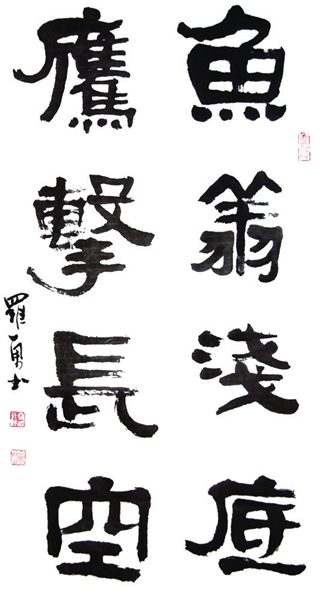 魚翔淺底
鷹擊長空
羅勇书